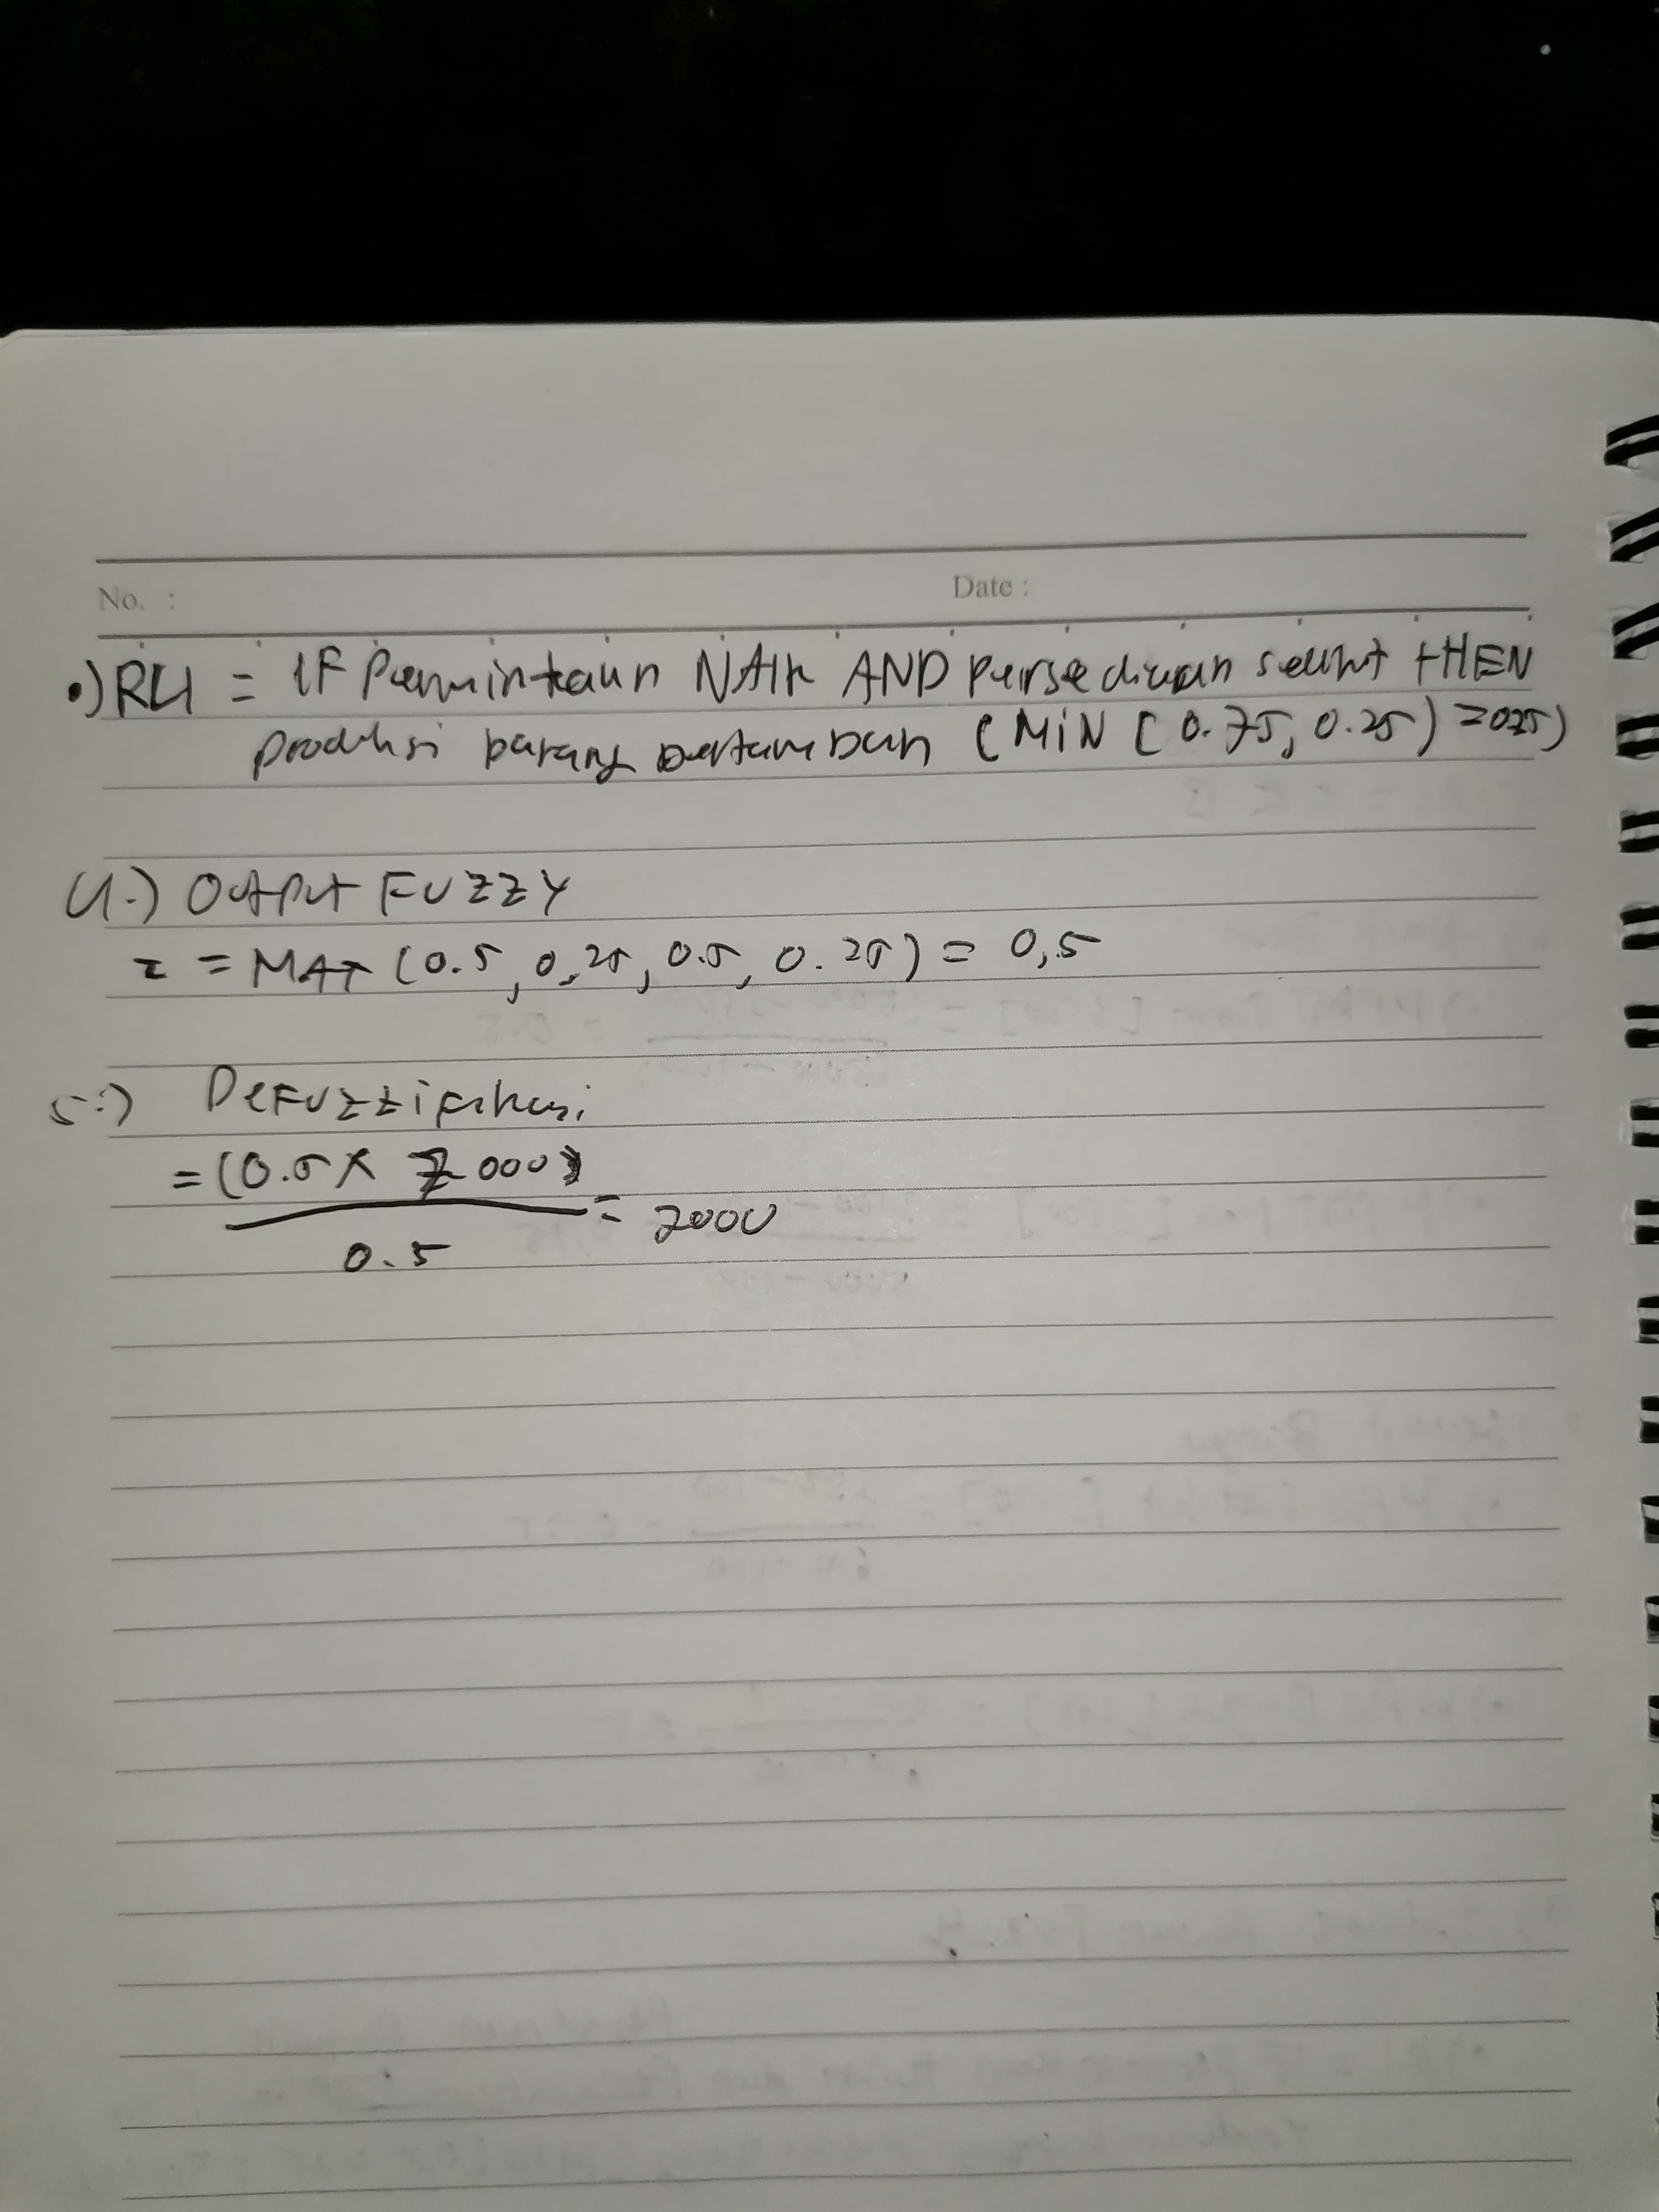 No. : Date :
•) R4 = IF Permintaan NAIK AND persediaan sedikit tHEN
produksi barang bertambah (MiN (0.75, 0.25) = 0.25)
4.) Output FUZZY
z = MAX (0.5, 0,25, 0.5, 0.25) = 0,5
5.) DeFuzzifikasi
= (0.5 x 7000)
= 7000
0.5